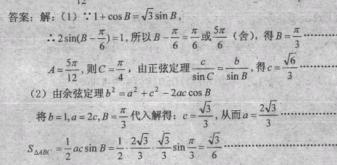 12
答案：解：(1) ∵1+cos B=√3 sin B，
∴2sin(B−π/6)=1, 所以 B−π/6=π/6 或 5π/6 (舍), 得 B=π/3 …………
A=5π/12, 则 C=π/4, 由正弦定理 c/sin C=b/sin B, 得 c=√6/3 …………
(2) 由余弦定理 b²=a²+c²−2ac cos B
将 b=1, a=2c, B=π/3 代入解得: c=√3/3, 从而 a=2√3/3 …………
S△ABC=1/2 ac sin B=1/2·2√3/3·√3/3 sin π/3=√3/6 …………